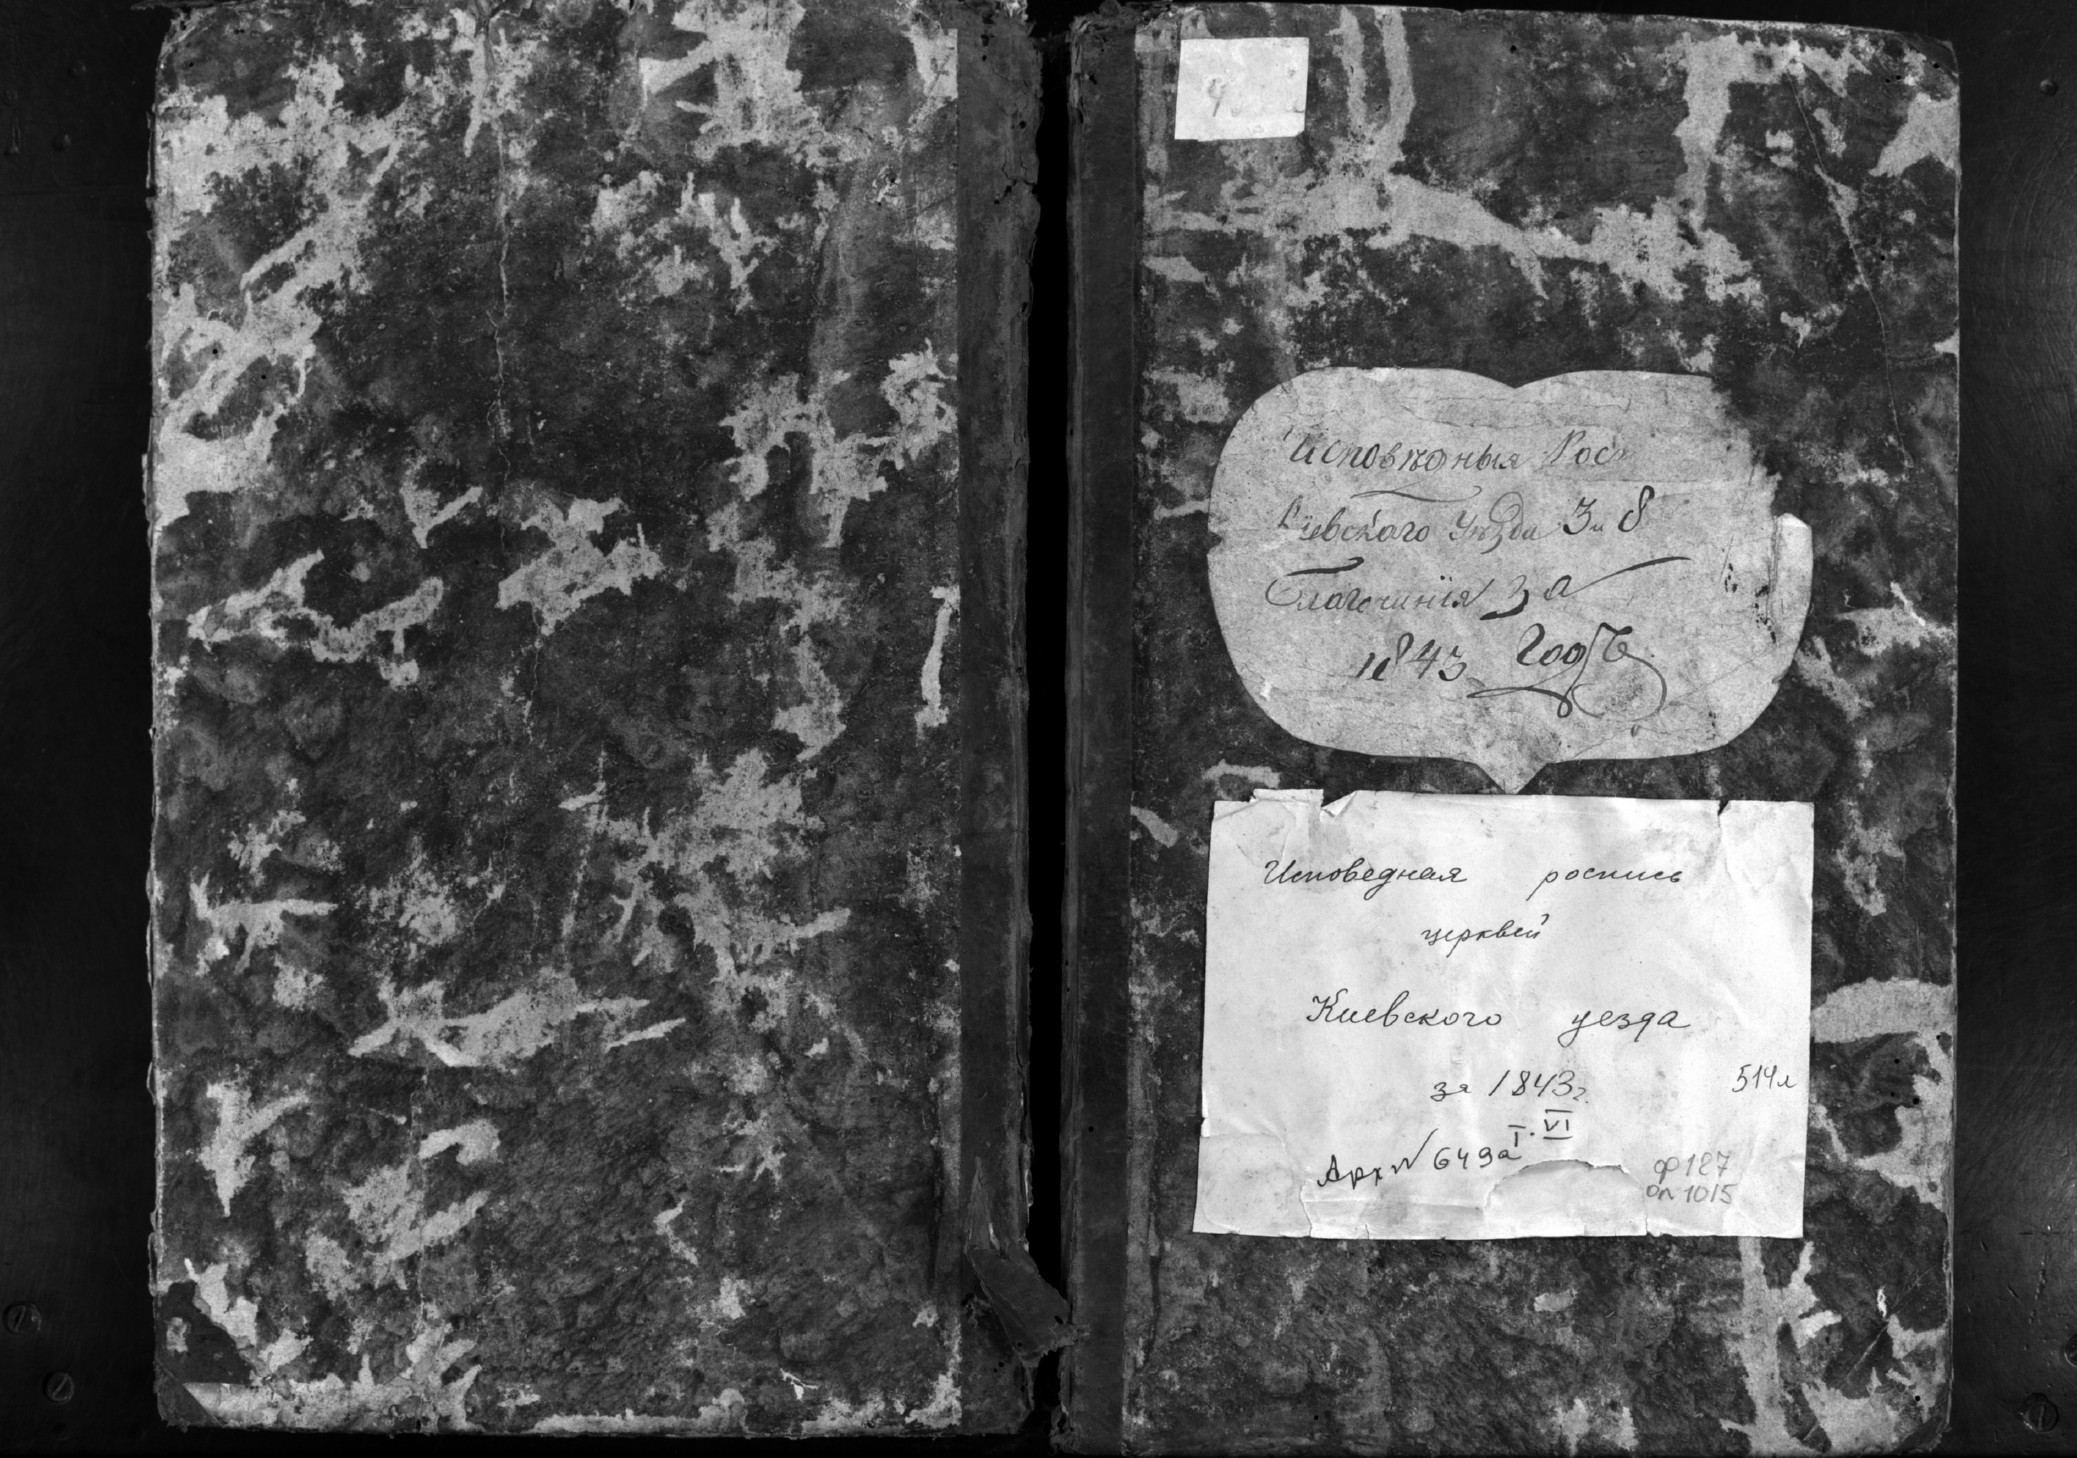 9
Исповѣдныя Рос
Кіевского Уѣзда 3 и 8
Благочинія за
1843 Годъ
Исповедная роспись
церквей
Киевского уезда
за 1843 г.
514 л
Арх № 649а I. VI
ф 127
оп 1015